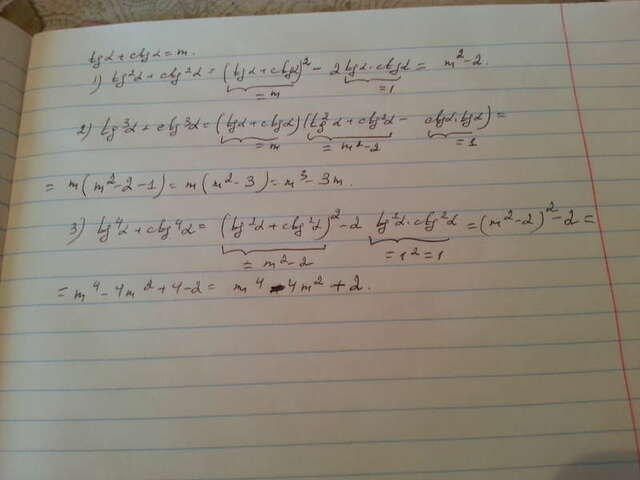 tgα + ctgα = m.
1) tg²α + ctg²α = (tgα + ctgα)² - 2 tgα·ctgα = m² - 2.
= m = 1
2) tg³α + ctg³α = (tgα + ctgα)(tg²α + ctg²α - ctgα·tgα) =
= m = m² - 2 = 1
= m(m² - 2 - 1) = m(m² - 3) = m³ - 3m.
3) tg⁴α + ctg⁴α = (tg²α + ctg²α)² - 2 tg²α·ctg²α = (m² - 2)² - 2 =
= m² - 2 = 1² = 1
= m⁴ - 4m² + 4 - 2 = m⁴ - 4m² + 2.